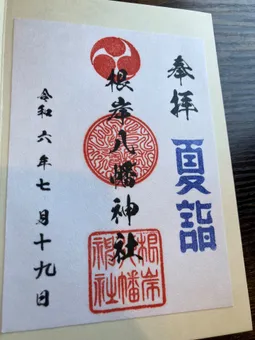 奉拝
夏詣
根岸八幡神社
根岸八幡神社
令和六年七月十九日